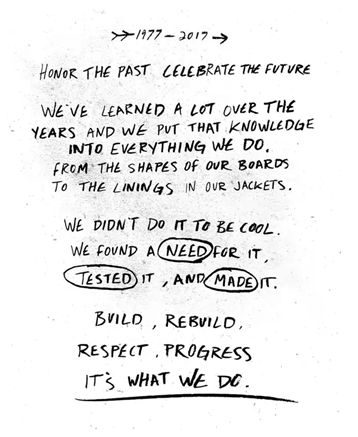 1977-2017
HONOR THE PAST CELEBRATE THE FUTURE
WE'VE LEARNED A LOT OVER THE
YEARS AND WE PUT THAT KNOWLEDGE
INTO EVERYTHING WE DO.
FROM THE SHAPES OF OUR BOARDS
TO THE LININGS IN OUR JACKETS.
WE DIDN'T DO IT TO BE COOL.
WE FOUND A NEED FOR IT,
TESTED IT, AND MADE IT.
BUILD, REBUILD,
RESPECT, PROGRESS
IT'S WHAT WE DO.